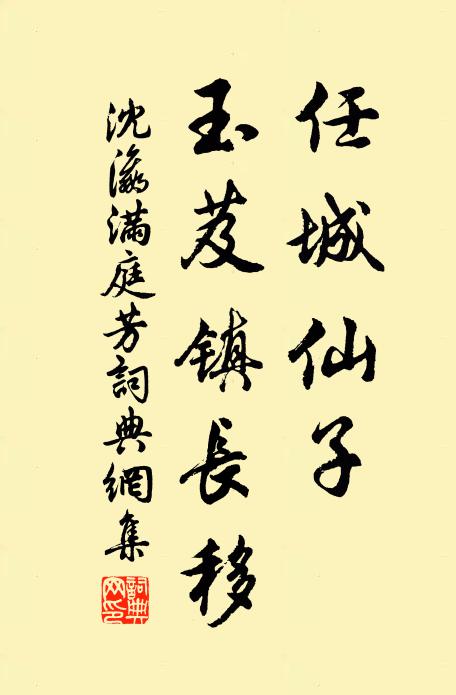 任城仙子
玉芰鎮長移
沈瀛滿庭芳詞典網集
詞典
网印